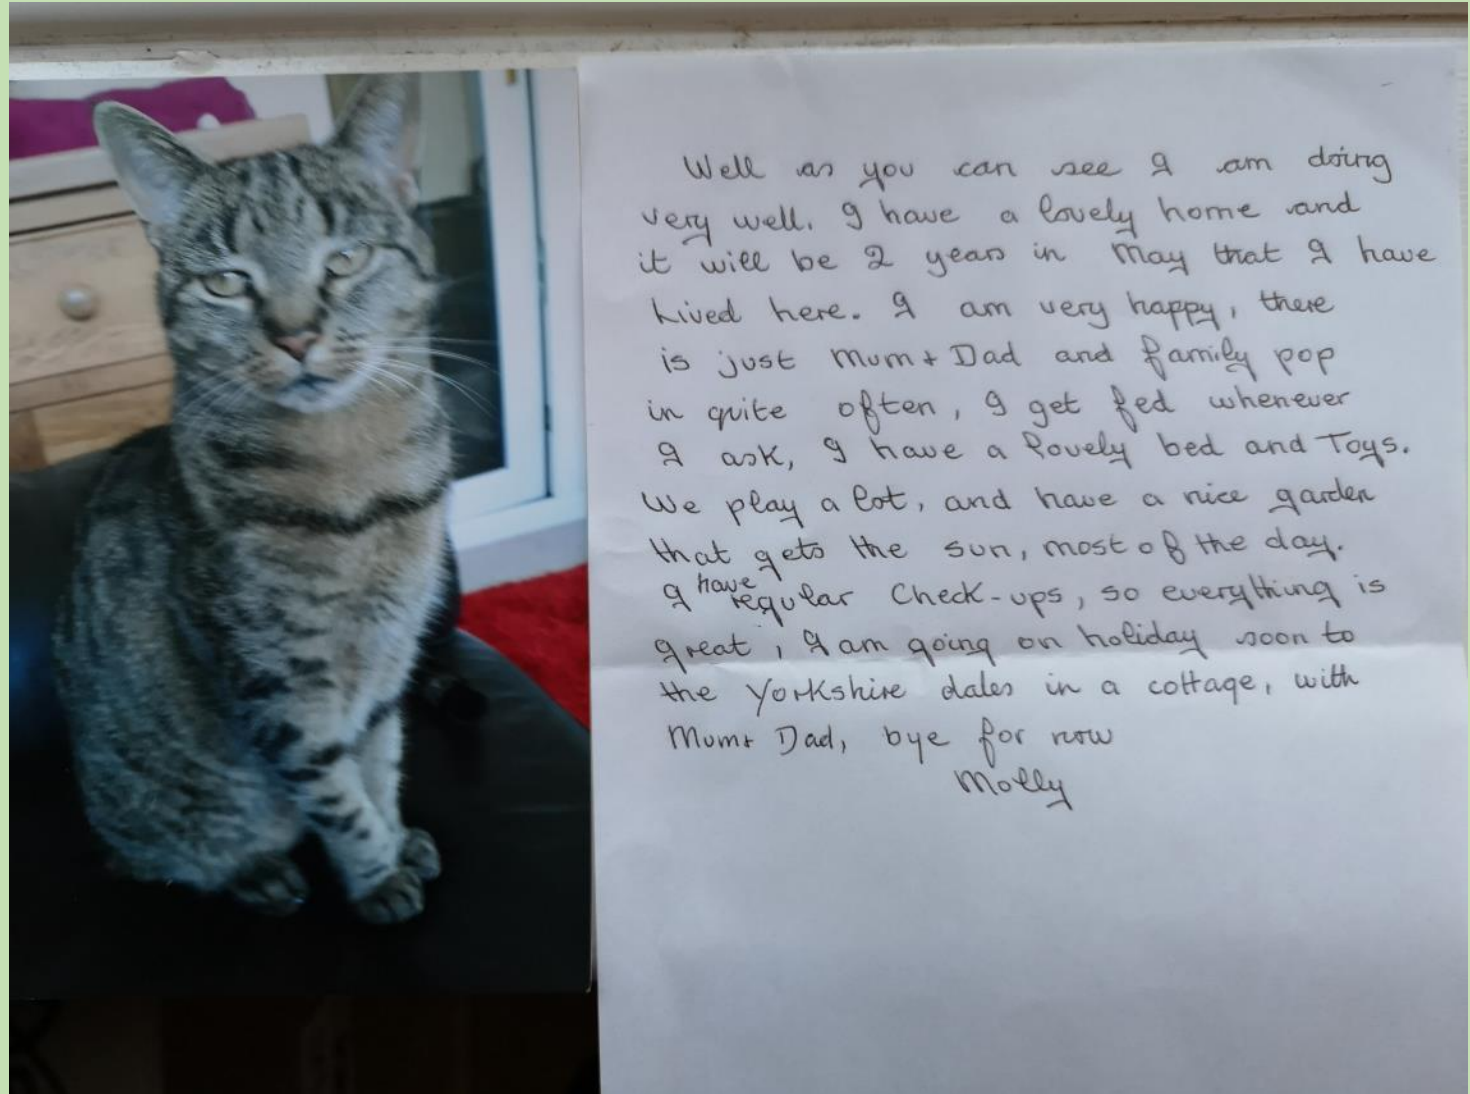 Well as you can see I am doing
very well. I have a lovely home and
it will be 2 years in May that I have
Lived here. I am very happy, there
is just Mum + Dad and family pop
in quite often, I get fed whenever
I ask, I have a lovely bed and Toys.
We play a lot, and have a nice garden
that gets the sun, most of the day.
I have regular Check-ups, so everything is
great, I am going on holiday soon to
the Yorkshire dales in a cottage, with
Mum + Dad, bye for now
Molly